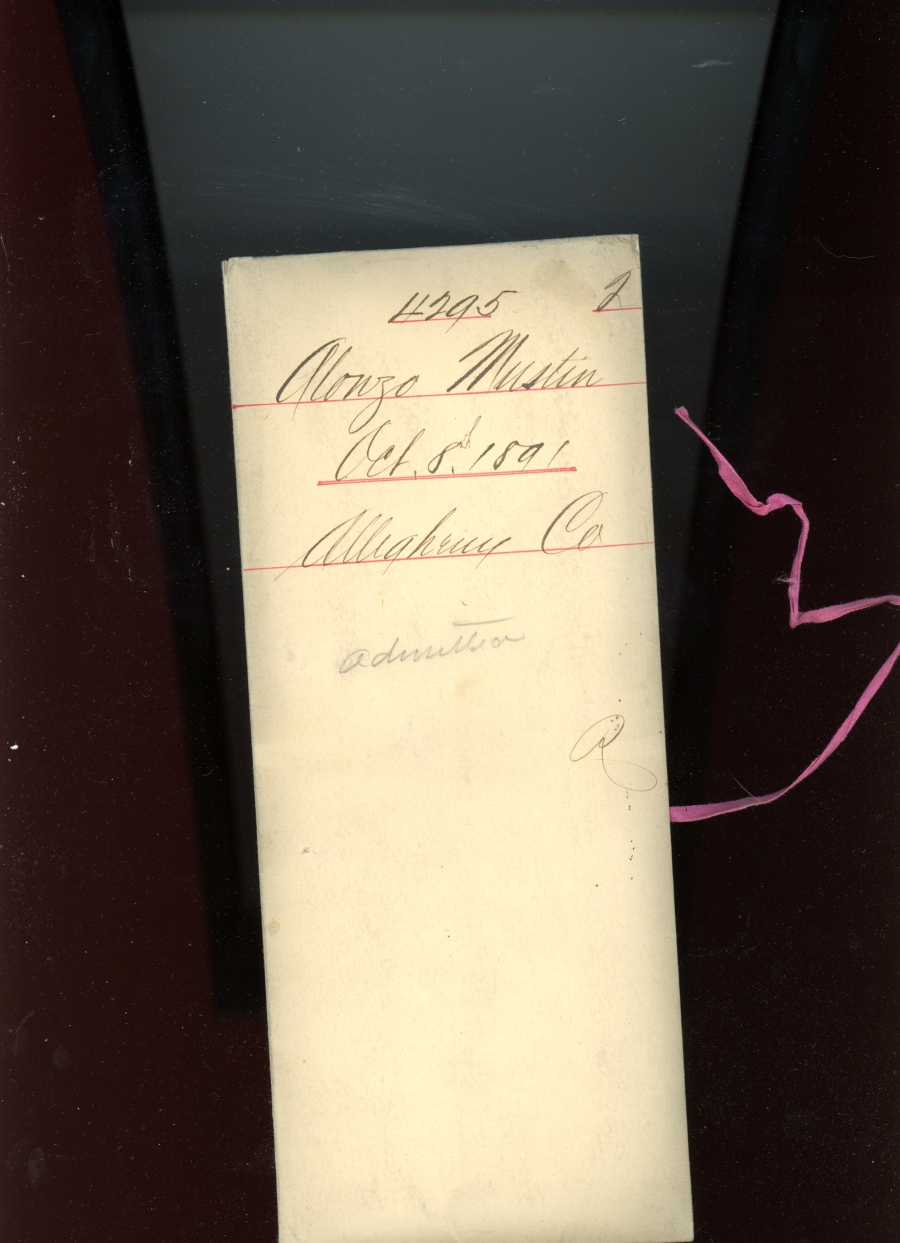 4295 2
Alonzo Mustin
Oct. 8. 1891
Allegheny Co
admitted
R